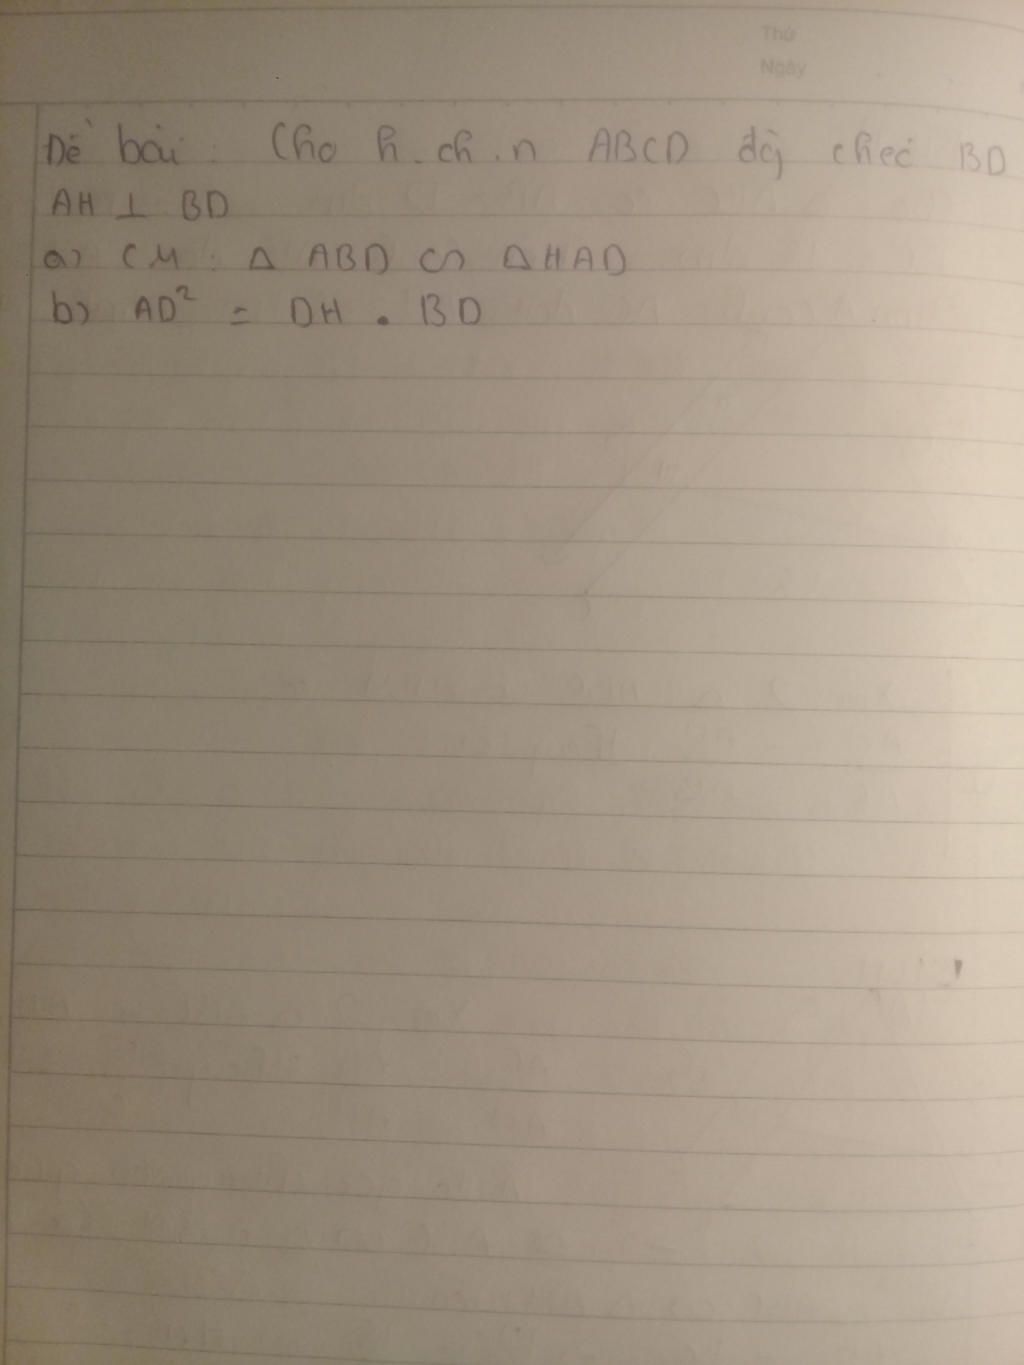 Thứ
Ngày
Đề bài : Cho h.ch.n ABCD đg chéo BD
AH ⊥ BD
a) CM : Δ ABD ∽ Δ HAD
b) AD² = DH . BD